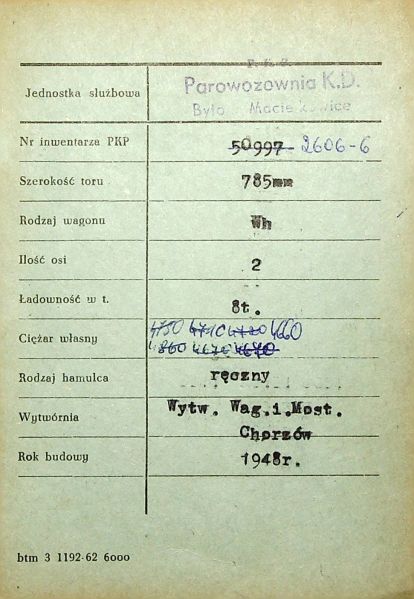 P. K. P.
Jednostka służbowa Parowozownia K.D.
Bytom Maciejkowice
Nr inwentarza PKP 50997 2606-6
Szerokość toru 785mm
Rodzaj wagonu Wh
Ilość osi 2
Ładowność w t. 8t.
4750 4710 4720 4660
Ciężar własny
4670
Rodzaj hamulca ręczny
Wytw. Wag.i.Most.
Wytwórnia
Chorzów
Rok budowy 1948r.
btm 3 1192-62 6000